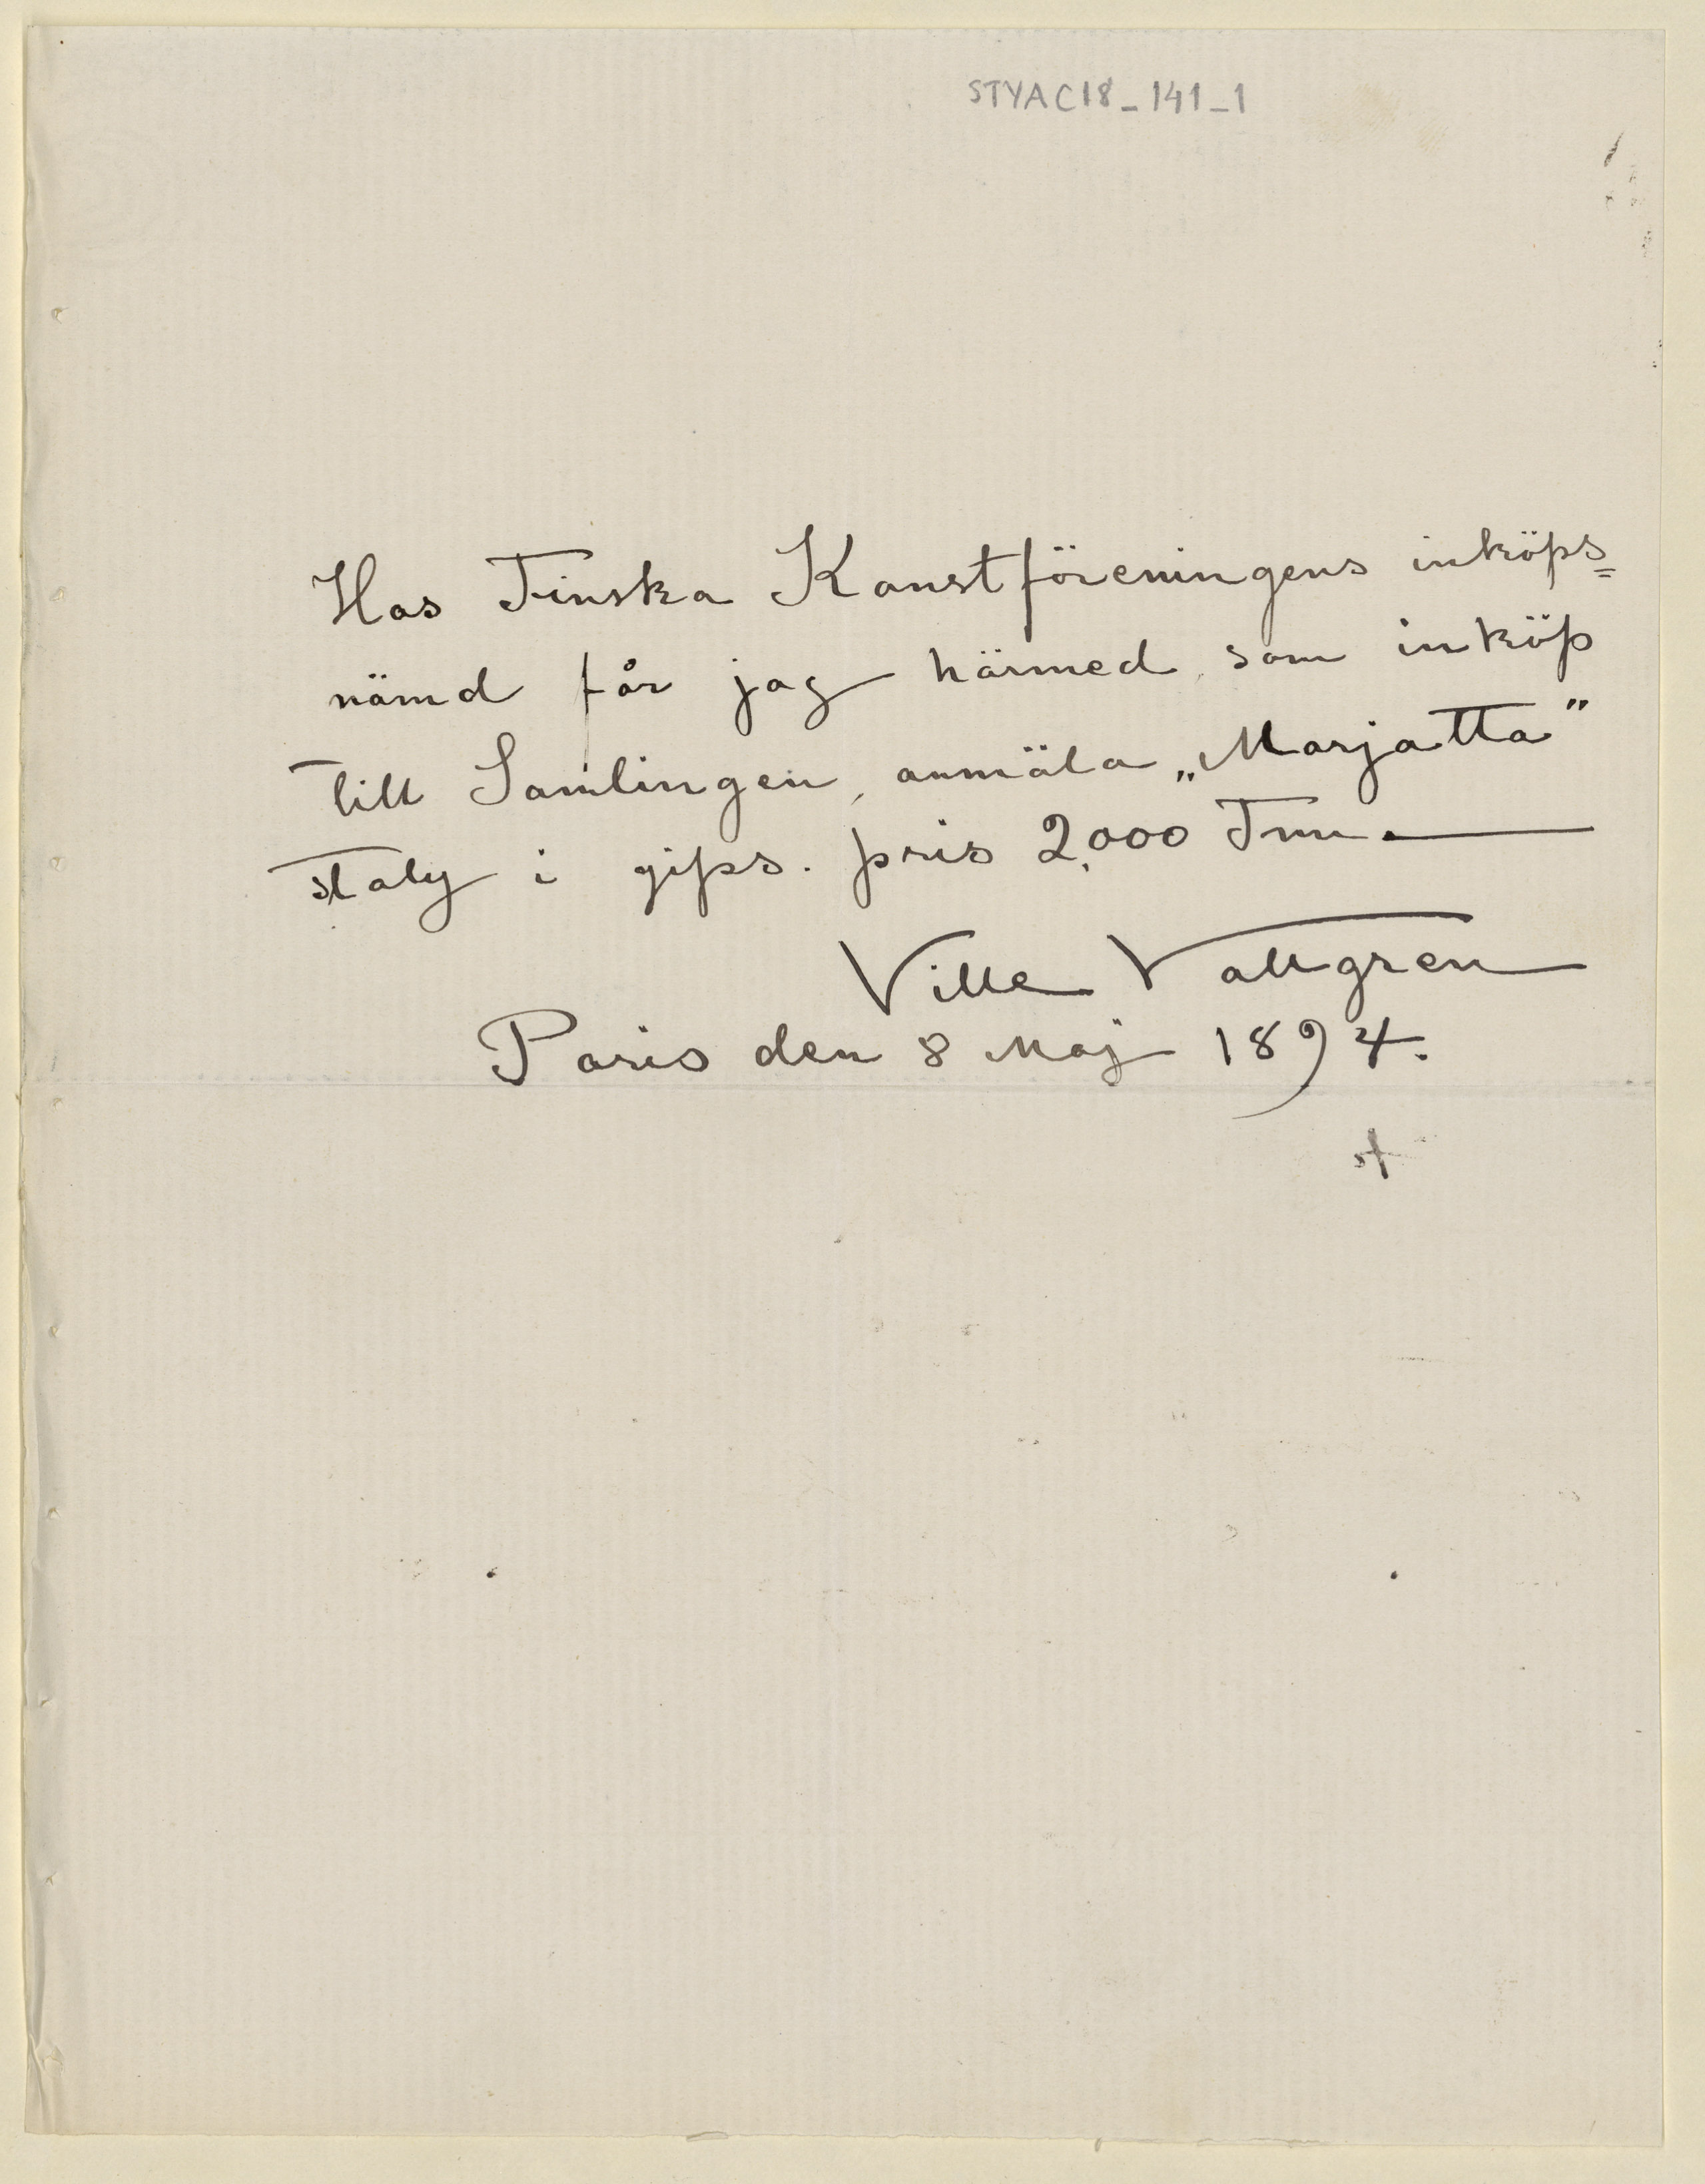 STYAC18_141_1
Hos Finska Konstföreningens inköps=
nämd får jag härmed, som inköp
till Samlingen, anmäla „Marjatta”
staty i gips. pris 2,000 Fmr.
Ville Vallgren
Paris den 8 Maj 1894.